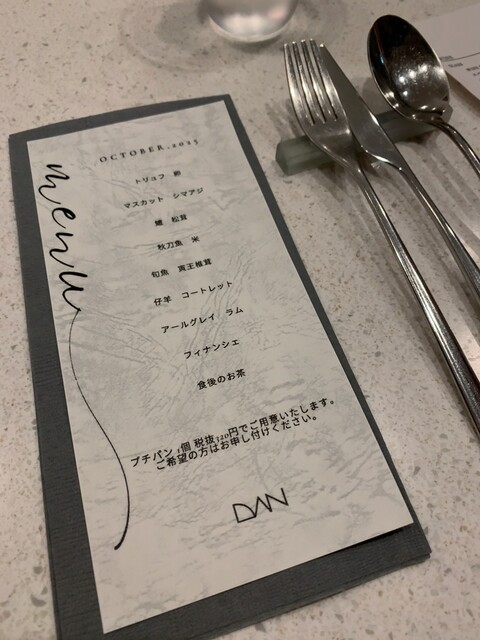 OCTOBER,2025
menu
トリュフ 卵
マスカット シマアジ
鱧 松茸
秋刀魚 米
旬魚 寅王椎茸
仔羊 コートレット
アールグレイ ラム
フィナンシェ
食後のお茶
プチパン 1個 税抜320円でご用意いたします。
ご希望の方はお申し付けください。
DAN